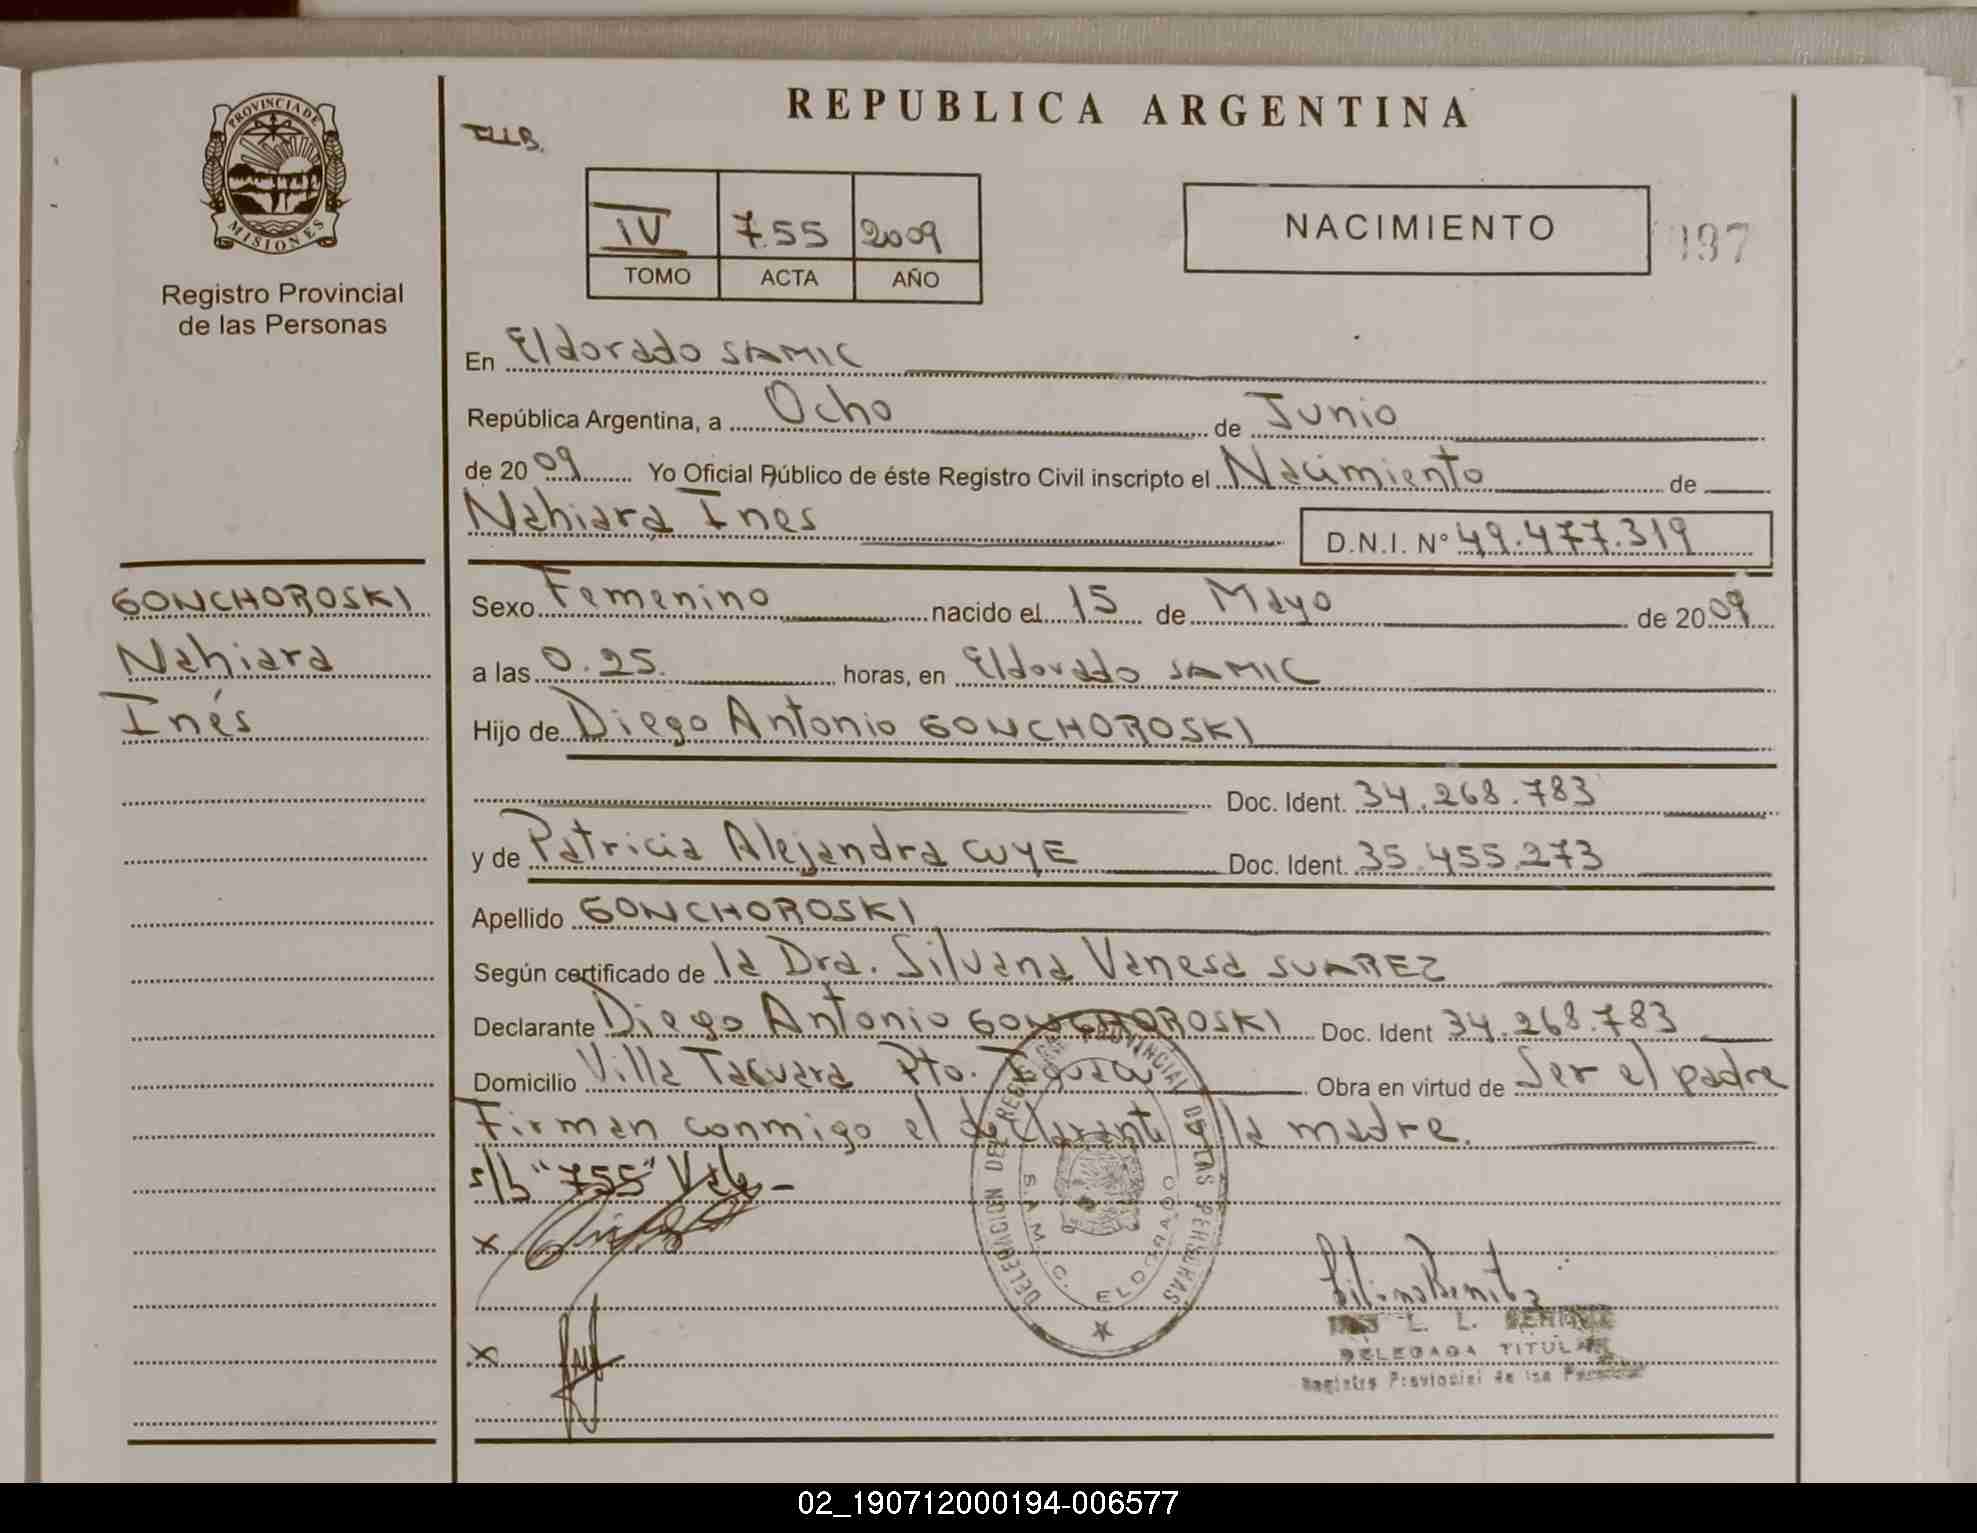 REPUBLICA ARGENTINA
PROVINCIA DE
MISIONES
Registro Provincial
de las Personas
IV 755 2009
TOMO ACTA AÑO
NACIMIENTO
197
En Eldorado SAMIC
República Argentina, a Ocho de Junio
de 2009 Yo Oficial Público de éste Registro Civil inscripto el Nacimiento de
Nahiara Ines D.N.I. Nº 49.477.319
GONCHOROSKI
Nahiara
Inés
Sexo Femenino nacido el 15 de Mayo de 2009
a las 0.25. horas, en Eldorado SAMIC
Hijo de Diego Antonio GONCHOROSKI
Doc. Ident. 34.268.783
y de Patricia Alejandra CUYE Doc. Ident. 35.455.273
Apellido GONCHOROSKI
Según certificado de la Dra. Silvana Vanesa SUAREZ
Declarante Diego Antonio GONCHOROSKI Doc. Ident 34.268.783
Domicilio Villa Tacuara Pto. Iguazu Obra en virtud de Ser el padre
Firman conmigo el declarante y la madre.
s/b "755" Vale -
x
x
DELEGACION DEL REGISTRO PROVINCIAL DE LAS PERSONAS
S.A.M.I.C. ELDORADO
L. L.
DELEGADA TITULAR
Registro Provincial de las Personas
02_190712000194-006577